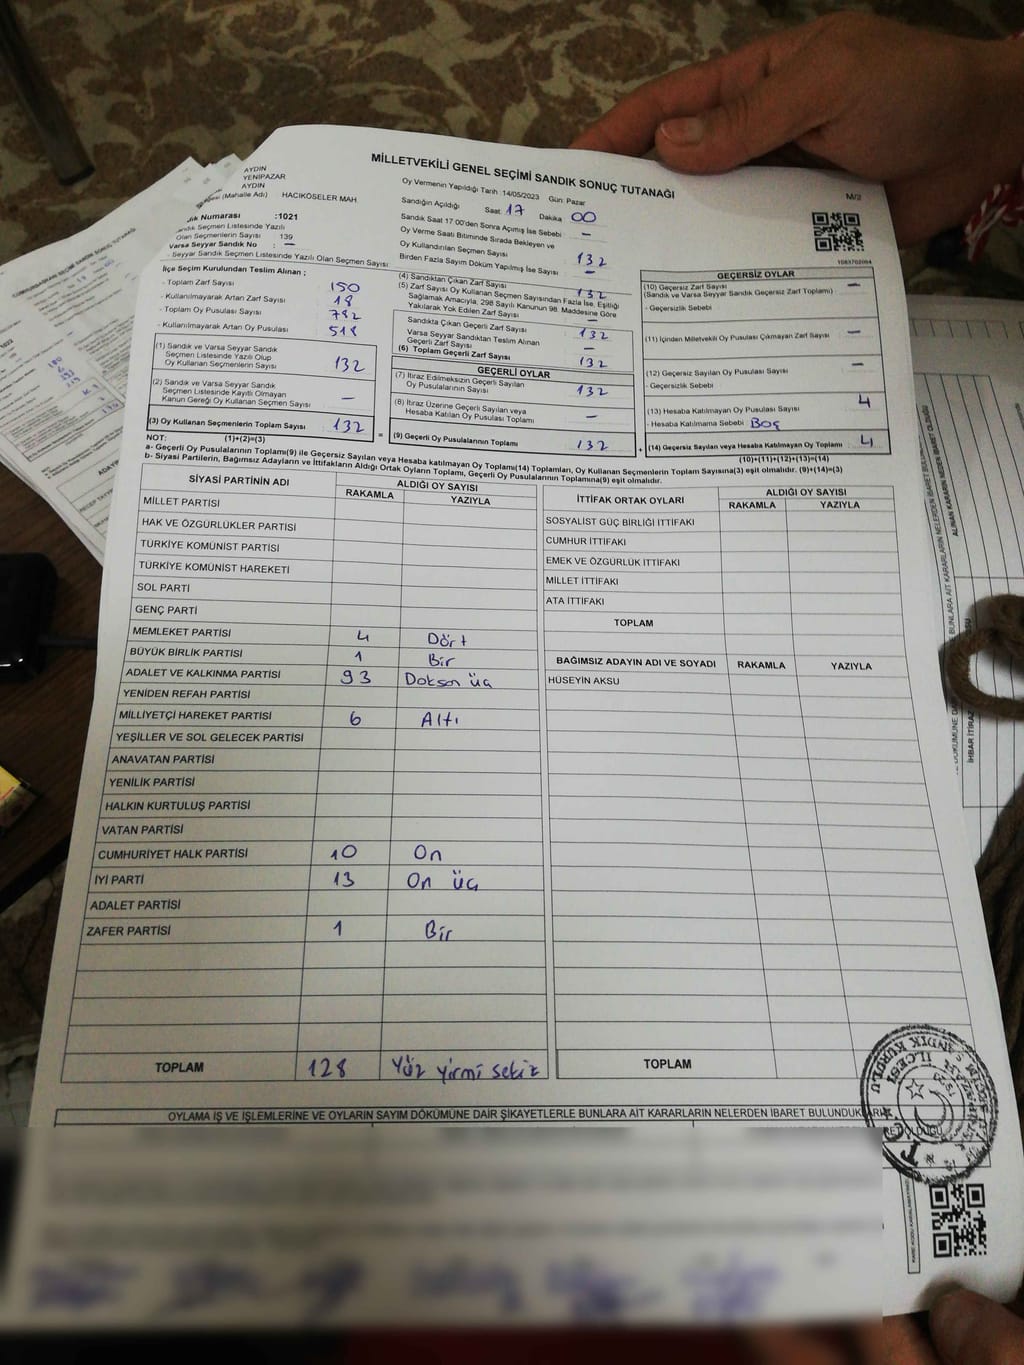 MİLLETVEKİLİ GENEL SEÇİMİ SANDIK SONUÇ TUTANAĞI
M/2
AYDIN
YENİPAZAR
AYDIN
(Mahalle Adı) HACIKÖSELER MAH.
Numarası :1021
Seçmen Listesinde Yazılı
Olan Seçmenlerin Sayısı 139
Varsa Seyyar Sandık No : —
Seyyar Sandık Seçmen Listesinde Yazılı Olan Seçmen Sayısı
Oy Vermenin Yapıldığı Tarih :14/05/2023 Gün: Pazar
Sandığın Açıldığı Saat 17 Dakika 00
Sandık Saat 17.00'den Sonra Açılmış İse Sebebi —
Oy Verme Saati Bitiminde Sırada Bekleyen ve
Oy Kullandırılan Seçmen Sayısı 132
Birden Fazla Sayım Döküm Yapılmış İse Sayısı —
İlçe Seçim Kurulundan Teslim Alınan ;
- Toplam Zarf Sayısı 150
- Kullanılmayarak Artan Zarf Sayısı 18
- Toplam Oy Pusulası Sayısı
- Kullanılmayarak Artan Oy Pusulası 518
(1) Sandık ve Varsa Seyyar Sandık
Seçmen Listesinde Yazılı Olup
Oy Kullanan Seçmenlerin Sayısı 132
(2) Sandık ve Varsa Seyyar Sandık
Seçmen Listesinde Kayıtlı Olmayan
Kanun Gereği Oy Kullanan Seçmen Sayısı —
(3) Oy Kullanan Seçmenlerin Toplam Sayısı 132
(4) Sandıktan Çıkan Zarf Sayısı 132
(5) Zarf Sayısı Oy Kullanan Seçmen Sayısından Fazla İse, Eşitliği
Sağlamak Amacıyla, 298 Sayılı Kanunun 98. Maddesine Göre
Yakılarak Yok Edilen Zarf Sayısı —
Sandıkta Çıkan Geçerli Zarf Sayısı 132
Varsa Seyyar Sandıktan Teslim Alınan
Geçerli Zarf Sayısı —
(6) Toplam Geçerli Zarf Sayısı 132
GEÇERLİ OYLAR
(7) İtiraz Edilmeksizin Geçerli Sayılan
Oy Pusulalarının Sayısı 132
(8) İtiraz Üzerine Geçerli Sayılan veya
Hesaba Katılan Oy Pusulası Toplamı —
= (9) Geçerli Oy Pusulalarının Toplamı 132
GEÇERSİZ OYLAR
(10) Geçersiz Zarf Sayısı —
(Sandık ve Varsa Seyyar Sandık Geçersiz Zarf Toplamı)
- Geçersizlik Sebebi
(11) İçinden Milletvekili Oy Pusulası Çıkmayan Zarf Sayısı —
(12) Geçersiz Sayılan Oy Pusulası Sayısı —
- Geçersizlik Sebebi
(13) Hesaba Katılmayan Oy Pusulası Sayısı 4
- Hesaba Katılmama Sebebi Boş
+ (14) Geçersiz Sayılan veya Hesaba Katılmayan Oy Toplamı 4
NOT: (1)+(2)=(3) (10)+(11)+(12)+(13)=(14)
a- Geçerli Oy Pusulalarının Toplamı(9) ile Geçersiz Sayılan veya Hesaba katılmayan Oy Toplamı(14) Toplamları, Oy Kullanan Seçmenlerin Toplam Sayısına(3) eşit olmalıdır. (9)+(14)=(3)
b- Siyasi Partilerin, Bağımsız Adayların ve İttifakların Aldığı Ortak Oyların Toplamı, Geçerli Oy Pusulalarının Toplamına(9) eşit olmalıdır.
SİYASİ PARTİNİN ADI ALDIĞI OY SAYISI
RAKAMLA YAZIYLA
MİLLET PARTİSİ
HAK VE ÖZGÜRLÜKLER PARTİSİ
TÜRKİYE KOMÜNİST PARTİSİ
TÜRKİYE KOMÜNİST HAREKETİ
SOL PARTİ
GENÇ PARTİ
MEMLEKET PARTİSİ 4 Dört
BÜYÜK BİRLİK PARTİSİ 1 Bir
ADALET VE KALKINMA PARTİSİ 93 Doksan üç
YENİDEN REFAH PARTİSİ
MİLLİYETÇİ HAREKET PARTİSİ 6 Altı
YEŞİLLER VE SOL GELECEK PARTİSİ
ANAVATAN PARTİSİ
YENİLİK PARTİSİ
HALKIN KURTULUŞ PARTİSİ
VATAN PARTİSİ
CUMHURİYET HALK PARTİSİ 10 On
İYİ PARTİ 13 On üç
ADALET PARTİSİ
ZAFER PARTİSİ 1 Bir
TOPLAM 128 Yüz yirmi sekiz
İTTİFAK ORTAK OYLARI ALDIĞI OY SAYISI
RAKAMLA YAZIYLA
SOSYALİST GÜÇ BİRLİĞİ İTTİFAKI
CUMHUR İTTİFAKI
EMEK VE ÖZGÜRLÜK İTTİFAKI
MİLLET İTTİFAKI
ATA İTTİFAKI
TOPLAM
BAĞIMSIZ ADAYIN ADI VE SOYADI RAKAMLA YAZIYLA
HÜSEYİN AKSU
TOPLAM
OYLAMA İŞ VE İŞLEMLERİNE VE OYLARIN SAYIM DÖKÜMÜNE DAİR ŞİKAYETLERLE BUNLARA AİT KARARLARIN NELERDEN İBARET BULUNDUK
SANDIK KURULU
İLÇESİ